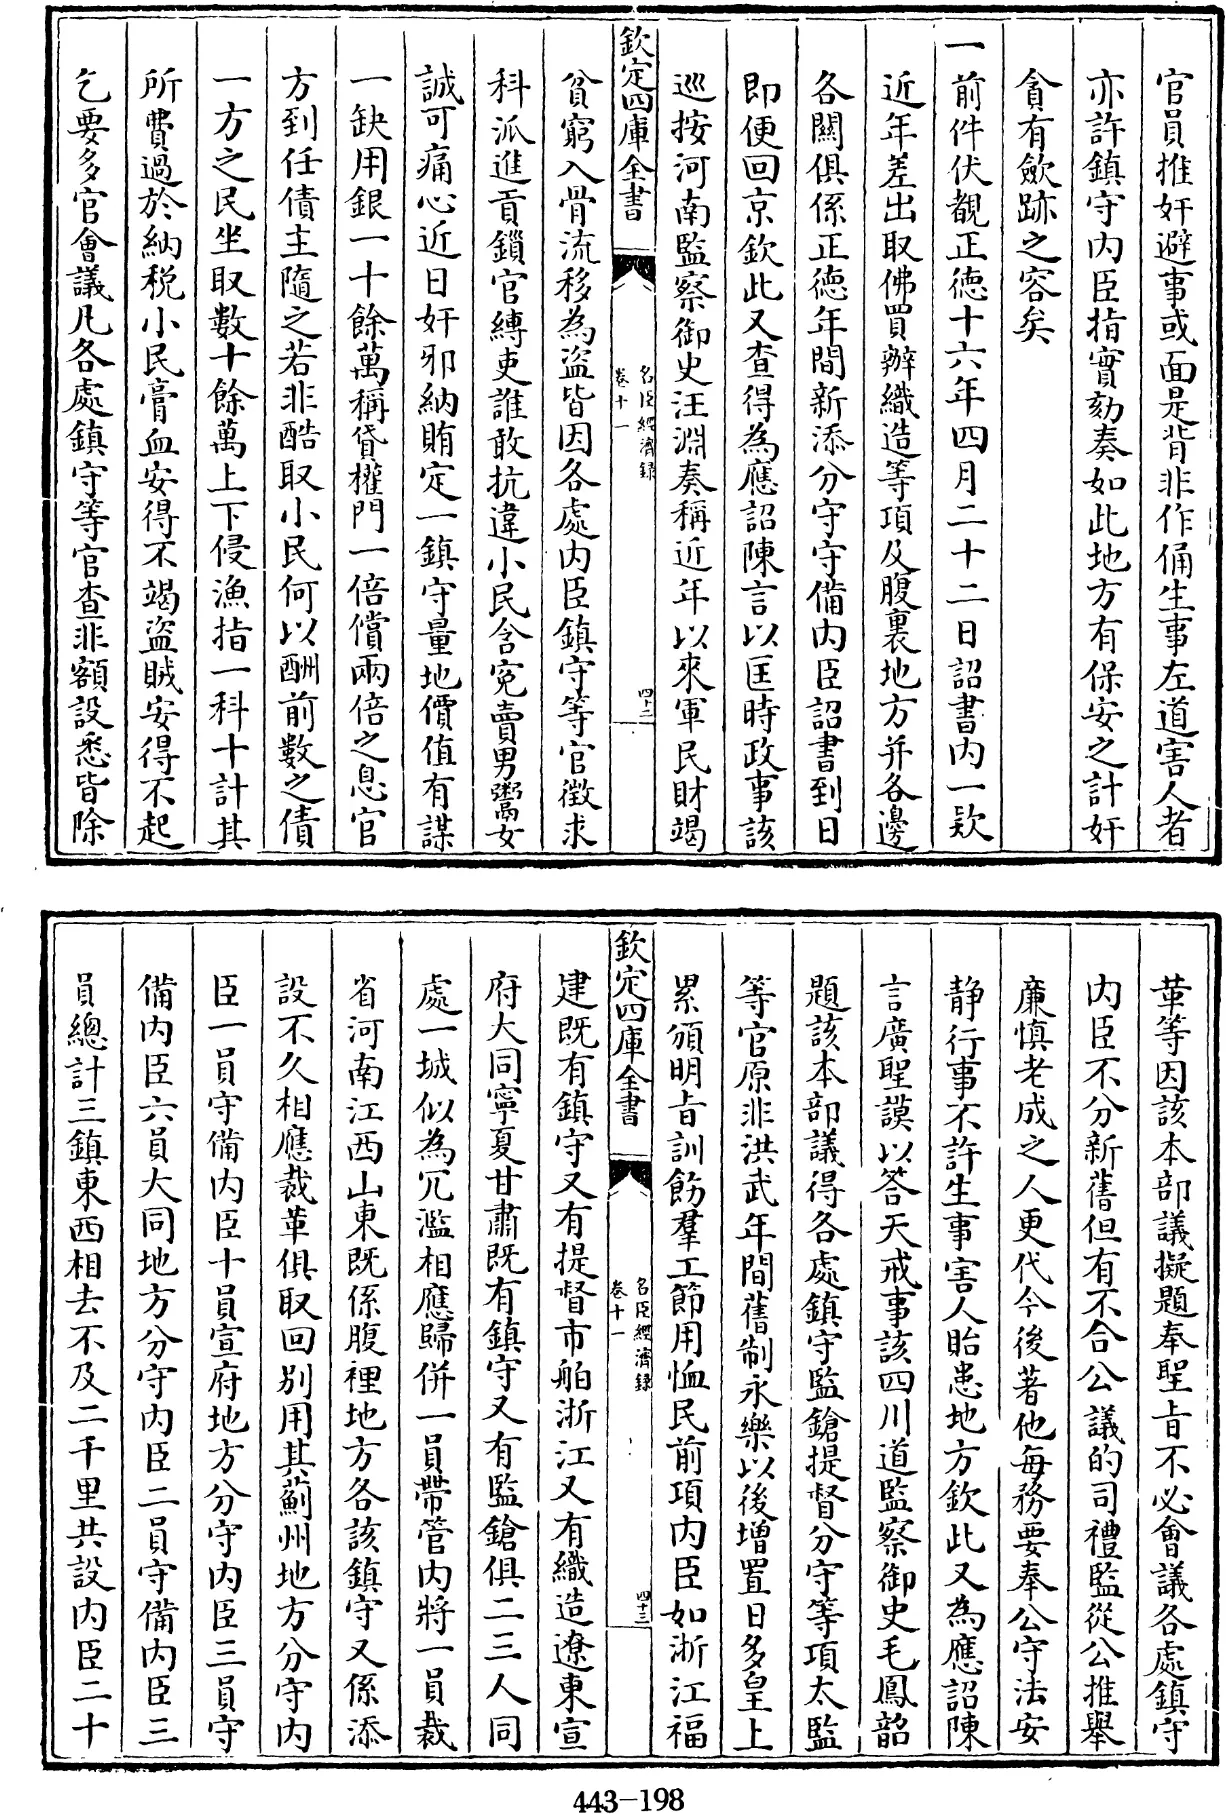 官員推奸避事或面是背非作俑生事左道害人者
亦許鎮守内臣指實劾奏如此地方有保安之計奸
貪有斂跡之容矣
一前件伏覩正德十六年四月二十二日詔書内一欵
近年差出取佛買辦織造等項及腹裏地方并各邊
各關俱係正德年間新添分守守備内臣詔書到日
即便回京欽此又查得為應詔陳言以匡時政事該
巡按河南監察御史汪淵奏稱近年以來軍民財竭
欽定四庫全書
名臣經濟録
卷十一
四十二
貧窮入骨流移為盜皆因各處内臣鎮守等官徵求
科派進貢鎻官縛吏誰敢抗違小民含寃賣男鬻女
誠可痛心近日奸邪納賄定一鎮守量地價值有謀
一缺用銀一十餘萬稱貸權門一倍償兩倍之息官
方到任債主隨之若非酷取小民何以酬前數之債
一方之民坐取數十餘萬上下侵漁指一科十計其
所費過於納税小民膏血安得不竭盜賊安得不起
乞要多官會議凡各處鎮守等官查非額設悉皆除
革等因該本部議擬題奉聖旨不必會議各處鎮守
内臣不分新舊但有不合公議的司禮監從公推舉
廉慎老成之人更代今後著他每務要奉公守法安
静行事不許生事害人貽患地方欽此又為應詔陳
言廣聖謨以答天戒事該四川道監察御史毛鳳韶
題該本部議得各處鎮守監鎗提督分守等項太監
等官原非洪武年間舊制永樂以後增置日多皇上
累頒明旨訓飭羣工節用恤民前項内臣如浙江福
欽定四庫全書
名臣經濟録
卷十一
四十三
建既有鎮守又有提督市舶浙江又有織造遼東宣
府大同寧夏甘肅既有鎮守又有監鎗俱二三人同
處一城似為冗濫相應歸併一員帶管内將一員裁
省河南江西山東既係腹裡地方各該鎮守又係添
設不久相應裁革俱取回别用其薊州地方分守内
臣一員守備内臣十員宣府地方分守内臣三員守
備内臣六員大同地方分守内臣二員守備内臣三
員總計三鎮東西相去不及二千里共設内臣二十
443-198